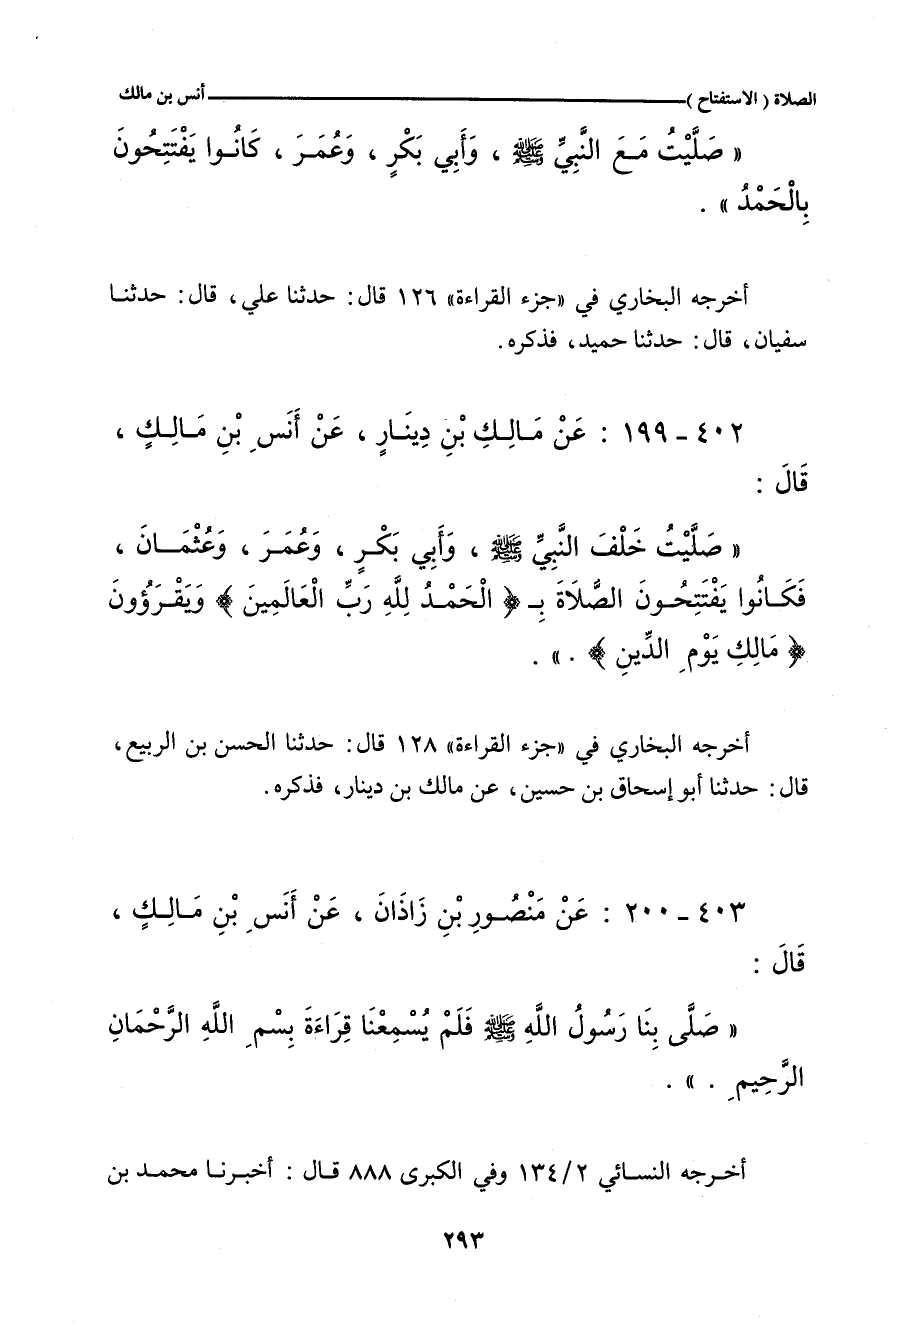 الصلاة ( الاستفتاح ) أنس بن مالك
« صَلَّيْتُ مَعَ النَّبِيِّ ﷺ ، وَأَبِي بَكْرٍ ، وَعُمَرَ ، كَانُوا يَفْتَتِحُونَ
بِالْحَمْدُ » .
أخرجه البخاري في «جزء القراءة» ١٢٦ قال: حدثنا علي، قال: حدثنا
سفيان، قال: حدثنا حميد، فذكره.
٤٠٢ - ١٩٩ : عَنْ مَالِكِ بْنِ دِينَارٍ ، عَنْ أَنَسِ بْنِ مَالِكٍ ،
قَالَ :
« صَلَّيْتُ خَلْفَ النَّبِيِّ ﷺ ، وَأَبِي بَكْرٍ ، وَعُمَرَ ، وَعُثْمَانَ ،
فَكَانُوا يَفْتَتِحُونَ الصَّلَاةَ بِـ ﴿ الْحَمْدُ لِلَّهِ رَبِّ الْعَالَمِينَ ﴾ وَيَقْرَؤُونَ
﴿ مَالِكِ يَوْمِ الدِّينِ ﴾ . » .
أخرجه البخاري في «جزء القراءة» ١٢٨ قال: حدثنا الحسن بن الربيع،
قال: حدثنا أبو إسحاق بن حسين، عن مالك بن دينار، فذكره.
٤٠٣ - ٢٠٠ : عَنْ مَنْصُورِ بْنِ زَاذَانَ ، عَنْ أَنَسِ بْنِ مَالِكٍ ،
قَالَ :
« صَلَّى بِنَا رَسُولُ اللَّهِ ﷺ فَلَمْ يُسْمِعْنَا قِرَاءَةَ بِسْمِ اللَّهِ الرَّحْمَانِ
الرَّحِيمِ . » .
أخرجه النسائي ١٣٤/٢ وفي الكبرى ٨٨٨ قال : أخبرنا محمد بن
٢٩٣